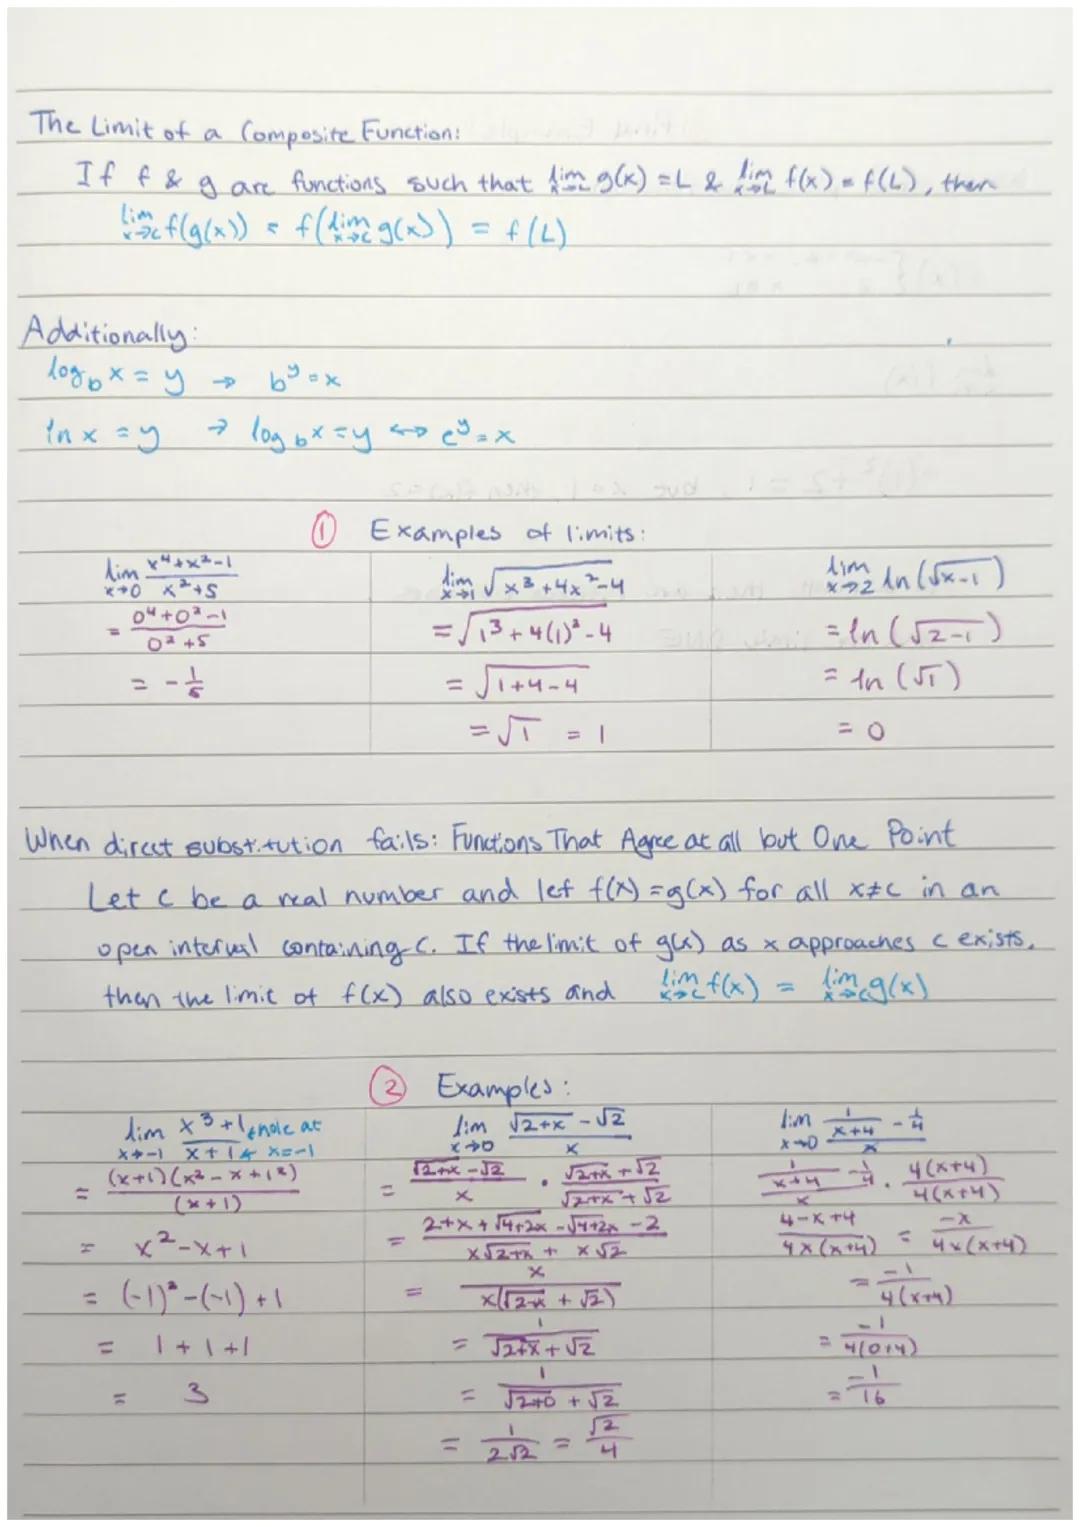 The Limit of a Composite Function:
If f & g are functions such that lim x→c g(x) = L & lim x→L f(x) = f(L), then
lim x→c f(g(x)) = f(lim x→c g(x)) = f(L)
Additionally:
log_b x = y → b^y = x
ln x = y → log_b x = y ↔ e^y = x
① Examples of limits:
lim x→0 (x^4+x^2-1)/(x^2+5)
= (0^4+0^2-1)/(0^2+5)
= -1/5
lim x→1 √(x^3+4x^2-4)
= √(1^3+4(1)^2-4)
= √(1+4-4)
= √1 = 1
lim x→2 ln(√(x-1))
= ln(√(2-1))
= ln(√1)
= 0
When direct substitution fails: Functions That Agree at all but One Point
Let c be a real number and let f(x) = g(x) for all x≠c in an
open interval containing c. If the limit of g(x) as x approaches c exists,
then the limit of f(x) also exists and lim x→c f(x) = lim x→c g(x)
② Examples:
lim x→-1 (x^3+1)/(x+1) ← hole at x=-1
= (x+1)(x^2-x+1^2)/(x+1)
= x^2-x+1
= (-1)^2-(-1)+1
= 1+1+1
= 3
lim x→0 (√(2+x)-√2)/x
= (√(2+x)-√2)/x · (√(2+x)+√2)/(√(2+x)+√2)
= (2+x+√(4+2x)-√(4+2x)-2)/(x√(2+x)+x√2)
= x/(x(√(2-x)+√2))
= 1/(√(2+x)+√2)
= 1/(√(2+0)+√2)
= 1/(2√2) = √2/4
lim x→0 (1/(x+4)-1/4)/x
(1/(x+4)-1/4)/x · 4(x+4)/4(x+4)
(4-x+4)/(4x(x+4)) = -x/(4x(x+4))
= -1/(4(x+4))
= -1/(4(0+4))
= -1/16